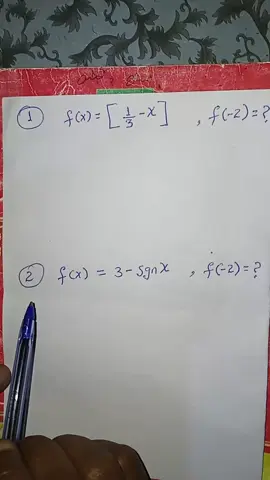 ① f(x) = [1/3 - x] , f(-2) = ?
② f(x) = 3 - sgn x , f(-2) = ?